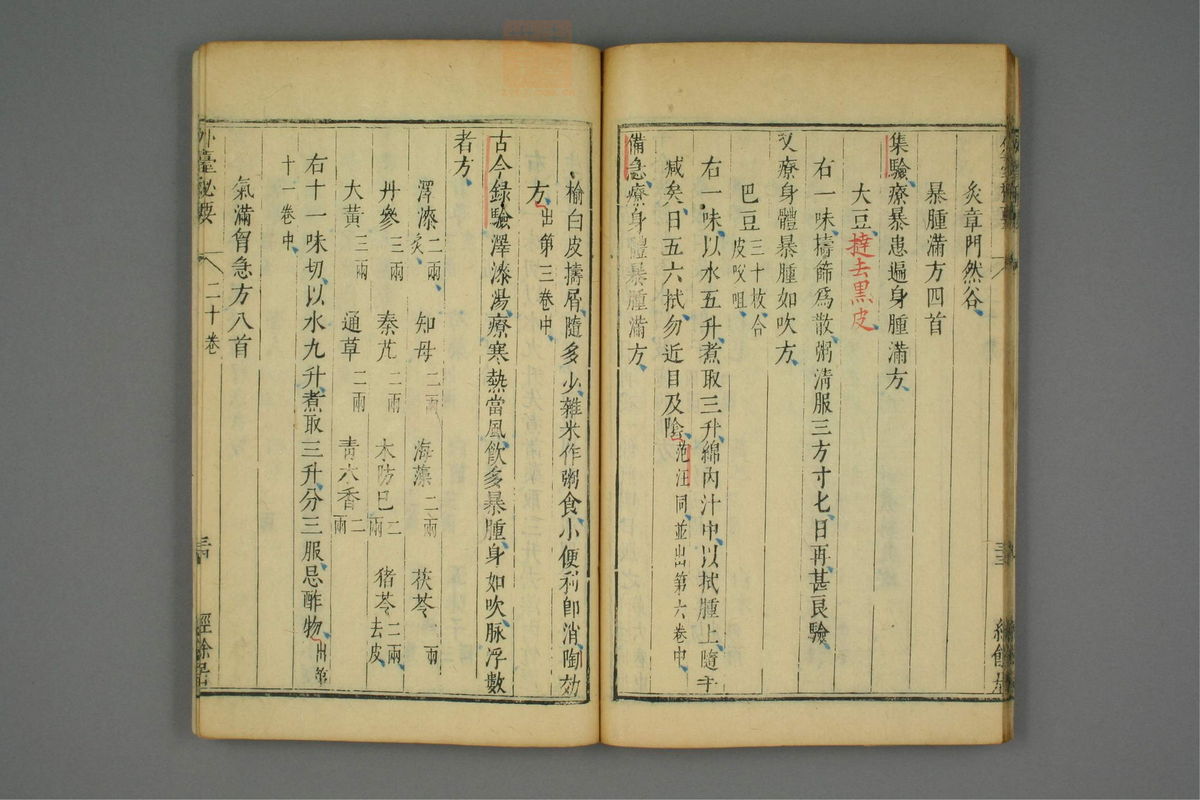 炙章門然谷
暴腫滿方四首
集驗療暴患遍身腫滿方
大豆撻去黑皮
右一味擣篩爲散粥清服三方寸七日再甚良驗
又療身體暴腫如吹方
巴豆三十枚合皮㕮咀
右一味以水五升煮取三升綿內汁中以拭腫上隨手
減矣日五六拭勿近目及陰范汪同並出第六卷中
備急療身體暴腫滿方
榆白皮擣屑隨多少雜米作粥食小便利卽消陶効
方出第三卷中
古今録驗澤漆湯療寒熱當風飲多暴腫身如吹脉浮數
者方
澤漆二兩炙 知母二兩 海藻二兩 茯苓 兩
丹參三兩 秦艽二兩 木防巳二兩 猪苓二兩去皮
大黃三兩 通草二兩 青木香二兩
右十一味切以水九升煮取三升分三服忌酢物出第
十一卷中
氣滿胷急方八首
外臺秘要 二十卷 三四 經餘居